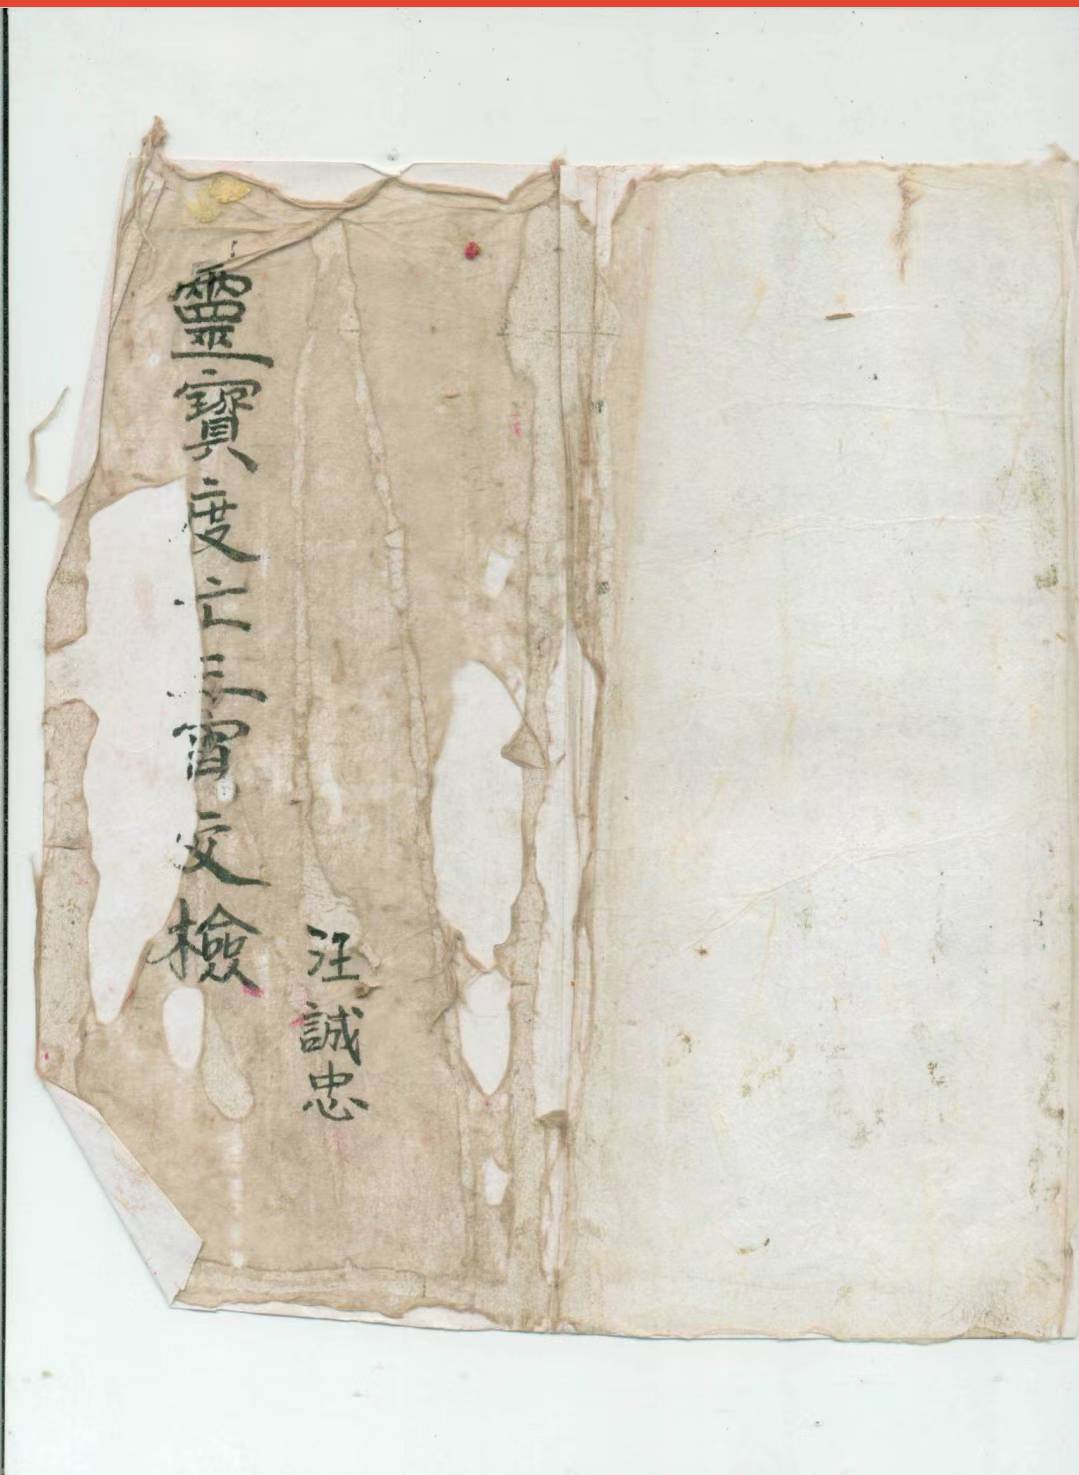 靈寶度亡三宵文檢
汪誠忠